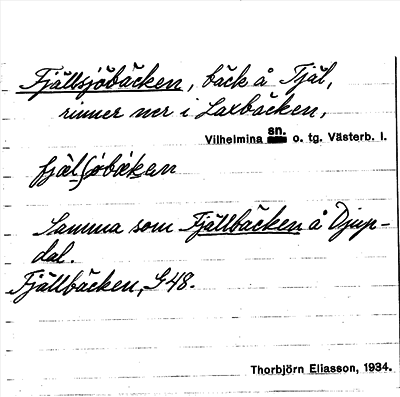 Fjällsjöbäcken, bäck å Tjäl,
rinner ner i Laxbäcken,
Vilhelmina sn. o. tg. Västerb. l.
Samma som Fjällbäcken å Djup-
dal.
Fjällbäcken, G48.
Thorbjörn Eliasson, 1934.